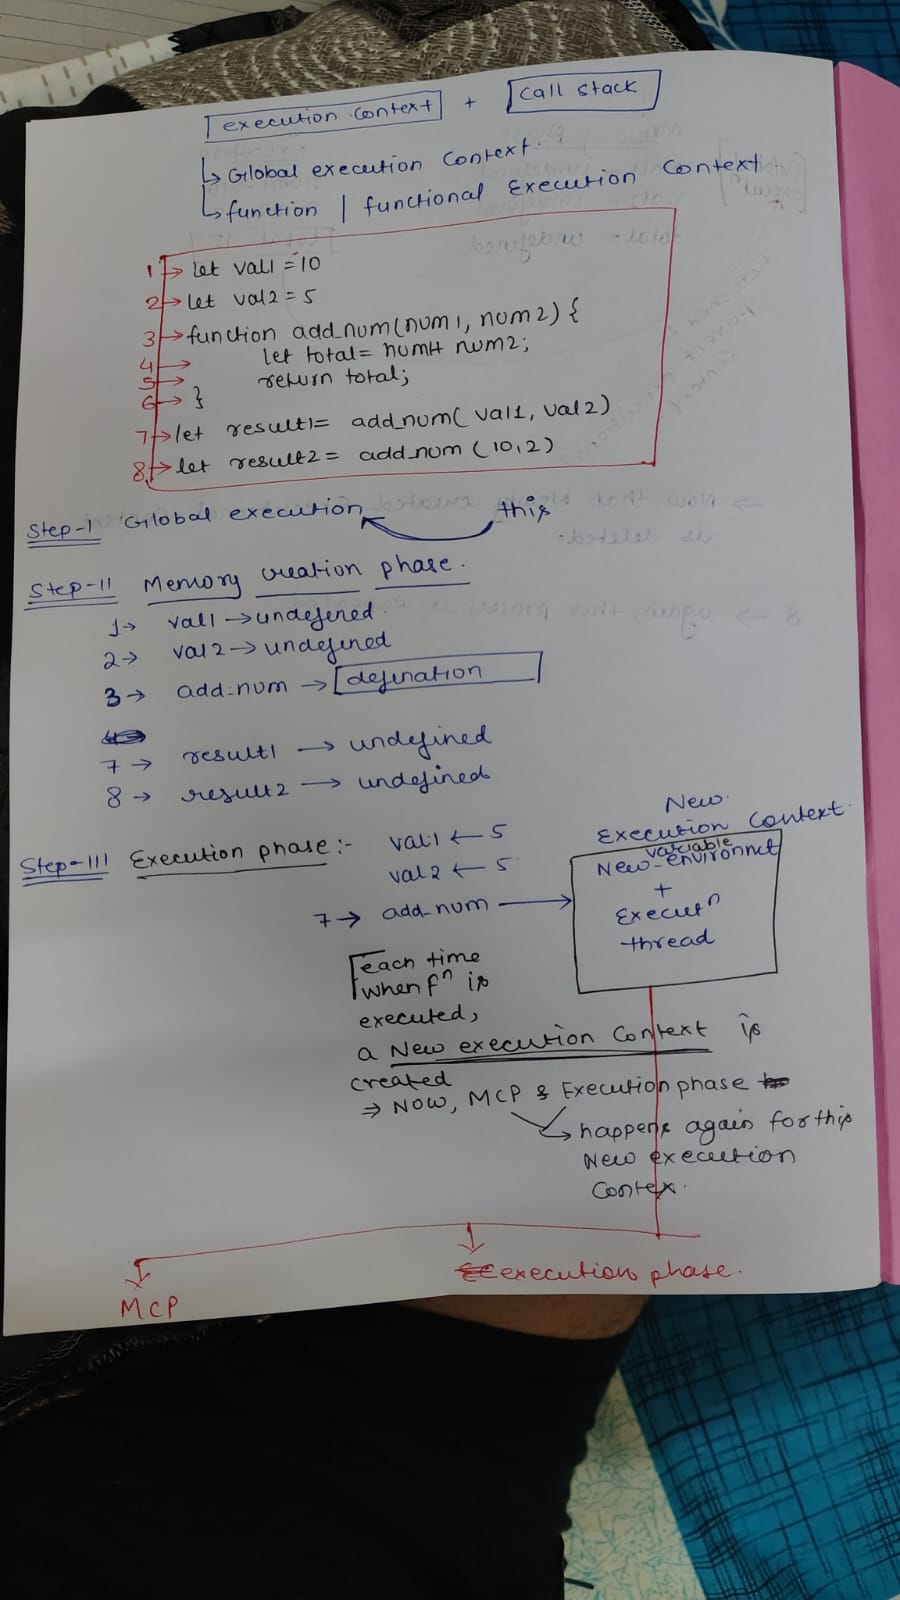 execution context + Call Stack
Global execution Context.
function | functional Execution Context
1 → let val1 = 10
2 → let val2 = 5
3 → function add_num(num1, num2) {
4 → let total = num1+ num2;
5 → return total;
6 → }
7 → let result1= add_num( val1, val2)
8 → let result2 = add_num (10,2)
Step-I Global execution this
Step-II Memory creation phase.
1 → val1 → undefined.
2 → val2 → undefined
3 → add_num → defination
7 → result1 → undefined
8 → result2 → undefined
Step-III Execution phase:- val1 ← 5
val2 ← 5
7 → add_num →
New
Execution Context.
variable
New-environnet
+
Executⁿ
thread
each time
when fⁿ is
executed,
a New execution Context is
created
⇒ Now, MCP & Execution phase
↳ happens again for this
New execution
Contex.
MCP execution phase.